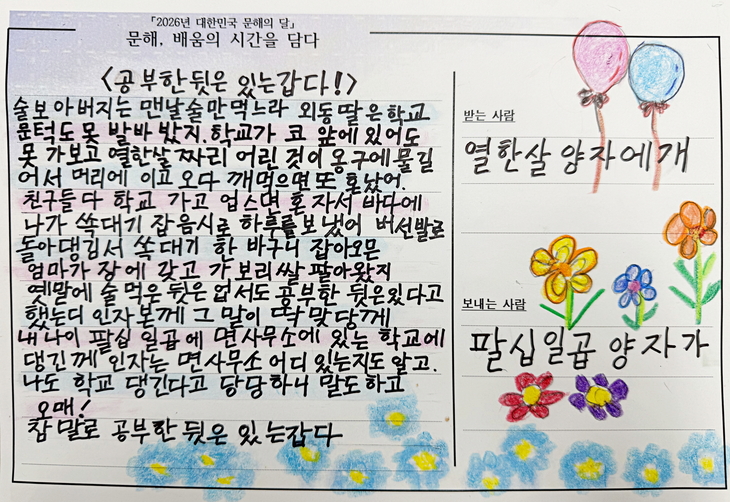 『2026년 대한민국 문해의 달』
문해, 배움의 시간을 담다
<공부한 뒷은 있는갑다!>
술보 아버지는 맨날 술만 먹느라 외동 딸은 학교
문턱도 못 발바 밧지. 학교가 코 앞에 있어도
못 가보고 열한살 짜리 어린 것이 옹구에 물길
어서 머리에 이고 오다 깨먹으면 또 혼났어.
친구들 다 학교 가고 업스면 혼자서 바다에
나가 쏙대기 잡음시로 하루를 보냈어 버선발로
돌아댕김서 쏙대기 한 바구니 잡아오믄
엄마가 장에 갖고 가 보리쌀 팔아왔지
옛말에 술 먹은 뒷은 업서도 공부한 뒷은 있다고
했는디 인자 본께 그 말이 딱 맞당께
내 나이 팔십 일곱에 면사무소에 있는 학교에
댕긴께 인자는 면사무소 어디 있는지도 알고.
나도 학교 댕긴다고 당당하니 말도하고
오매!
참말로 공부한 뒷은 있는갑다
받는 사람
열한살 양자에개
보내는 사람
팔십일곱 양자가